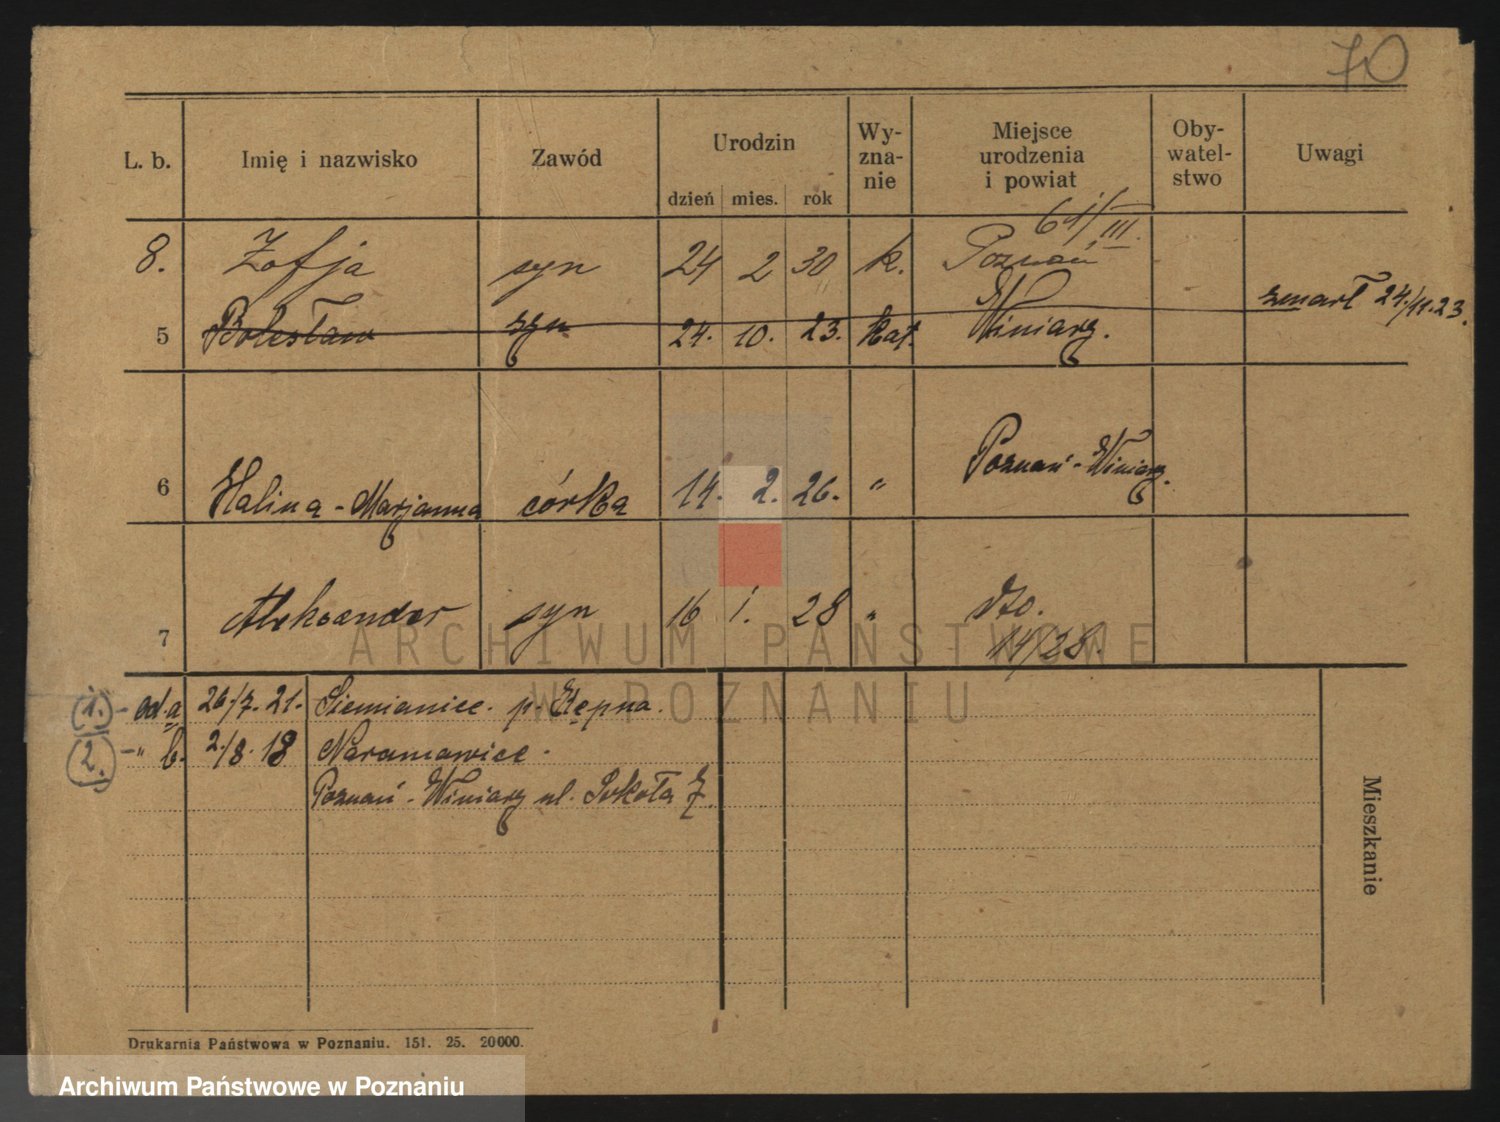 70
L. b. Imię i nazwisko Zawód Urodzin dzień mies. rok Wy-zna-nie Miejsce urodzenia i powiat Oby-watel-stwo Uwagi
61/III.
8. Zofja syn 24 2 30 k. Poznań
5 Bolesław syn 24. 10. 23. kat. Winiary. zmarł 24./11.23.
6 Halina - Marjanna córka 14. 2. 26. " Poznań - Winiary.
7 Aleksander syn 16 1. 28 " dto.
14/28.
1. - od a 26/7. 21. Siemianice. p. Kępna.
2. - " b. 2./8. 18 Naramowice.
Poznań - Winiary ul. Sokoła 7.
Mieszkanie
ARCHIWUM PAŃSTWOWE
W POZNANIU
Drukarnia Państwowa w Poznaniu. 151. 25. 20000.
Archiwum Państwowe w Poznaniu